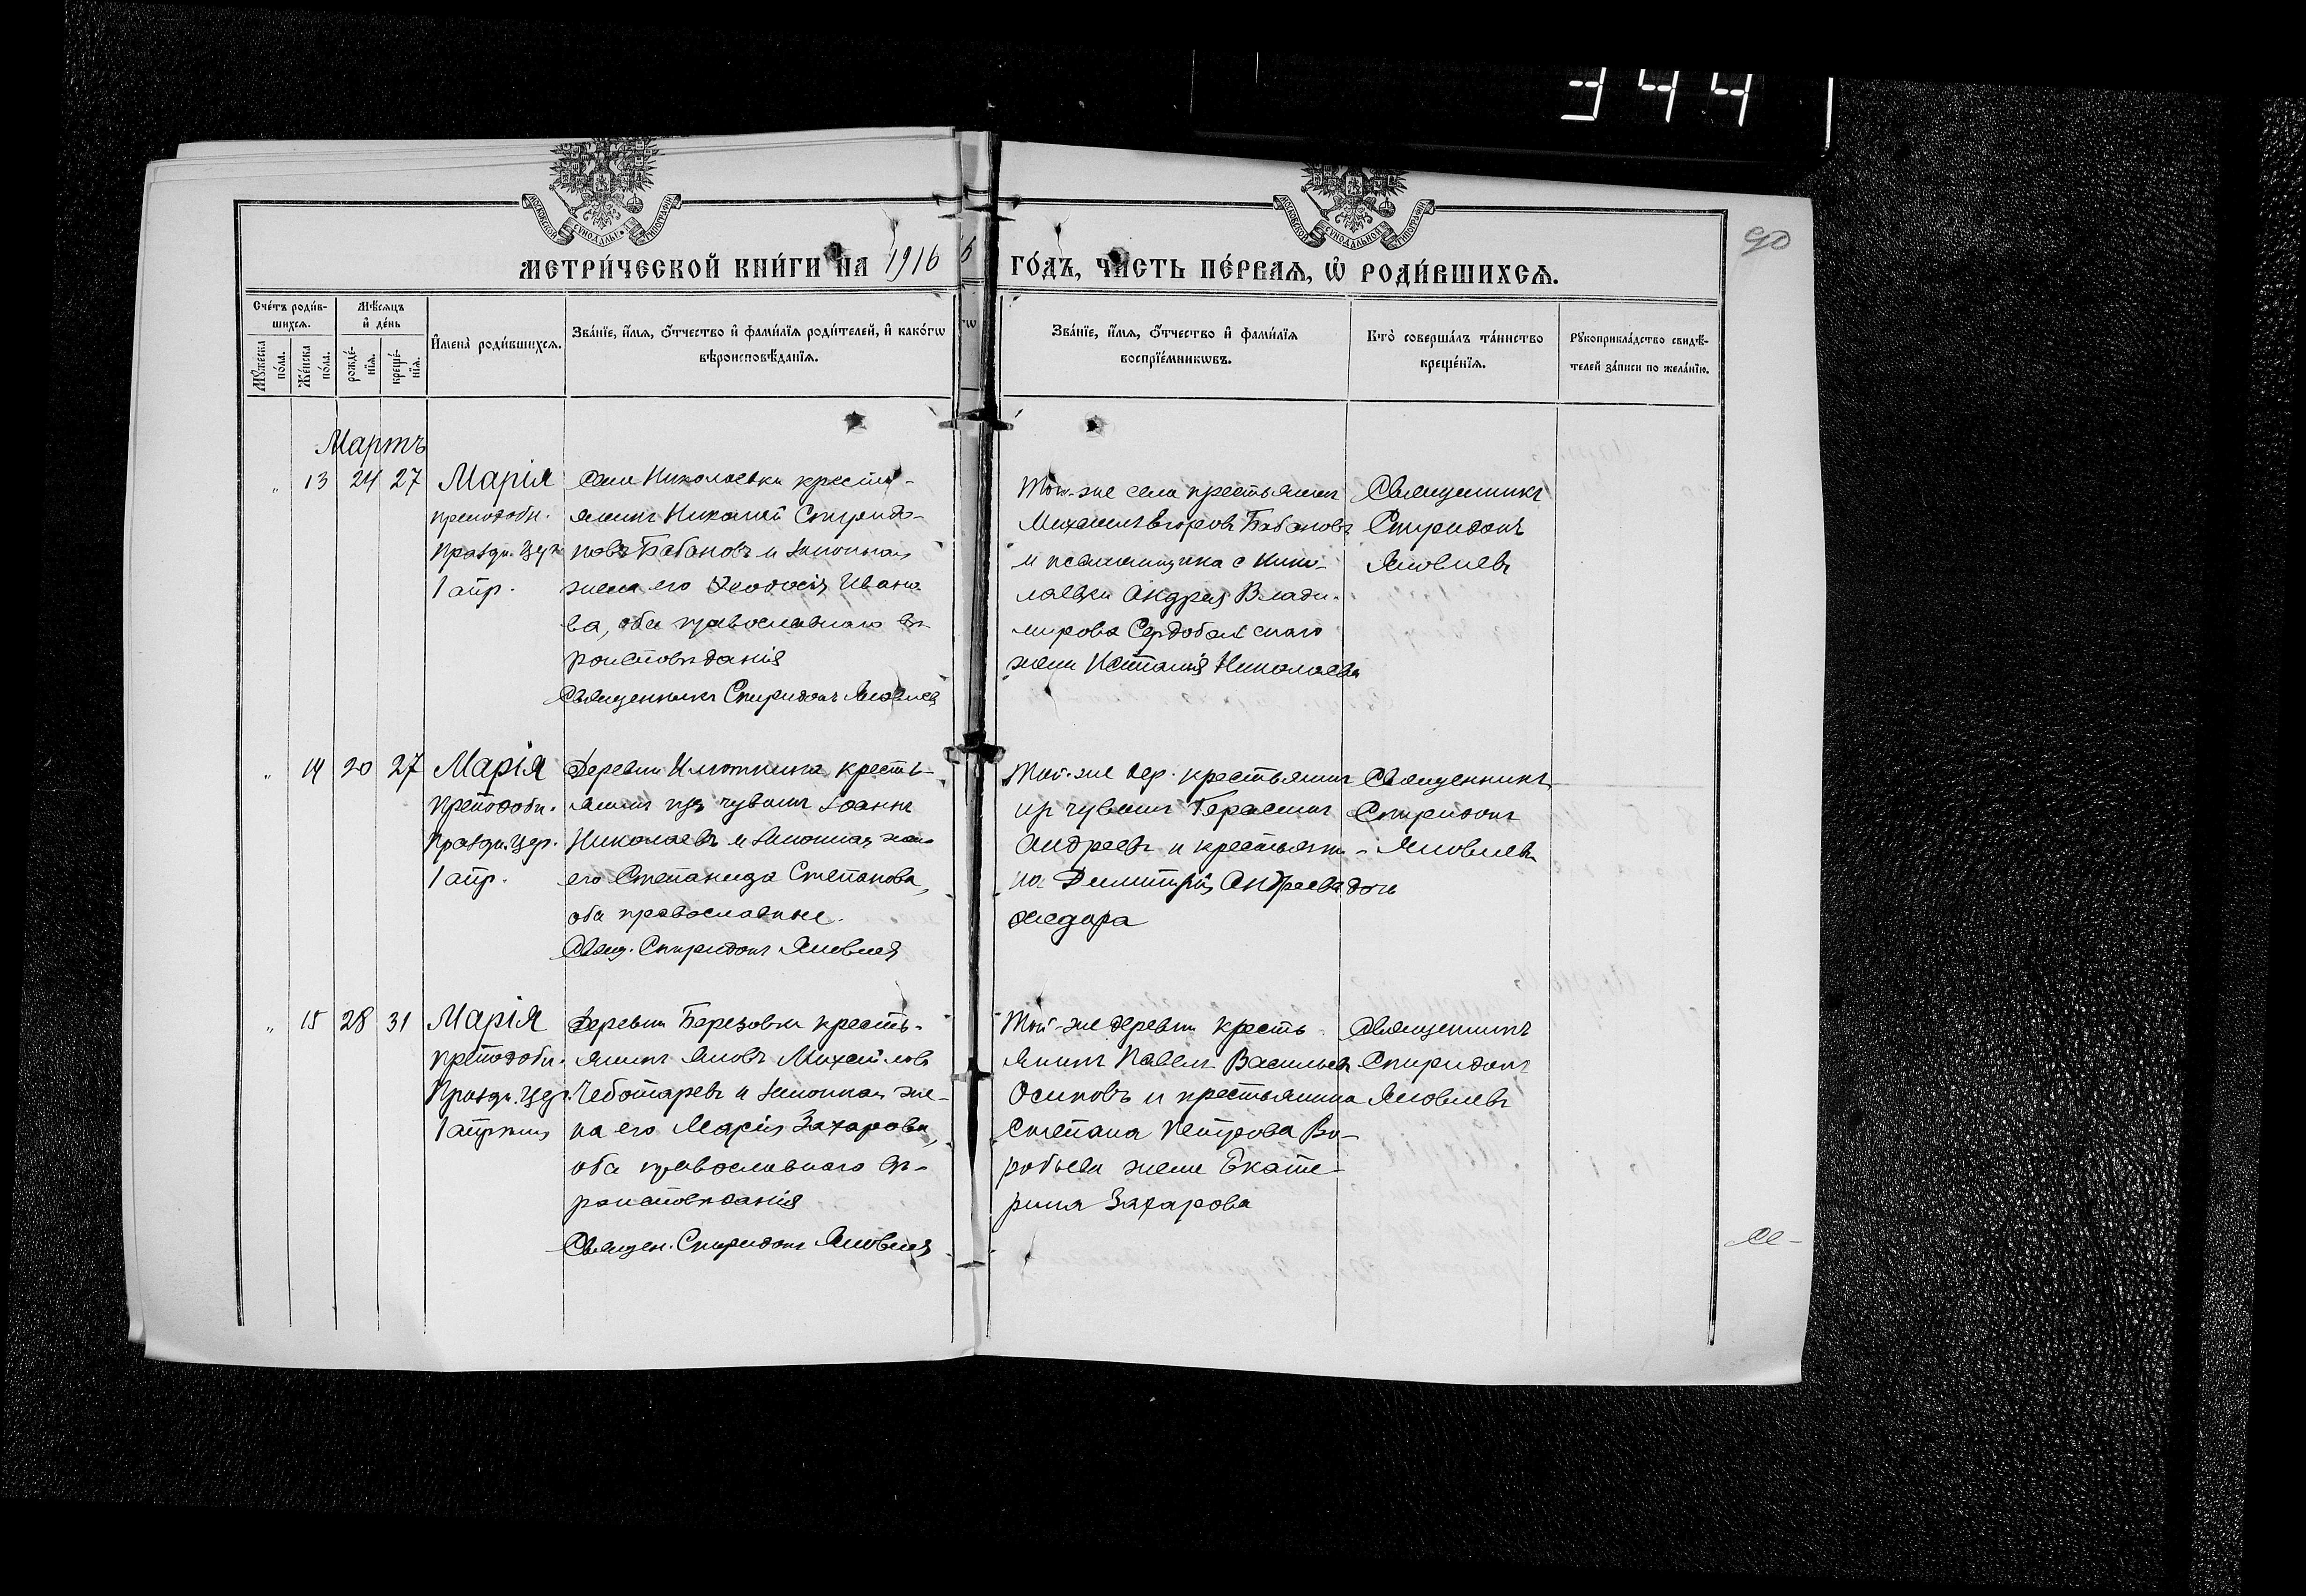 344
90
МОСКОВСКОЙ СѴНОДАЛЬНОЙ ТИПОГРАФІИ
МОСКОВСКОЙ СѴНОДАЛЬНОЙ ТИПОГРАФІИ
МЕТРИ́ЧЕСКОЙ КНИ́ГИ НА 1916 ГО́ДЪ, ЧА́СТЬ ПЕ́РВАЯ, Ѡ҆ РОДИ́ВШИХСѦ.
Сче́тъ роди́в-
шихсѧ.
Мꙋ́жеска
по́ла.
Же́нска
по́ла.
Мѣ́сѧцъ
и҆ де́нь
рожде́-
нїѧ.
креще́-
нїѧ.
И҆мена̀ роди́вшихсѧ.
Зва́нїе, и҆́мѧ, ѻ҆́тчество и҆ фами́лїѧ роди́телей, и҆ како́гѡ
вѣроисповѣ́данїѧ.
Зва́нїе, и҆́мѧ, ѻ҆́тчество и҆ фами́лїѧ
воспрїе́мникѡвъ.
Кто̀ соверша́лъ та́инство
креще́нїѧ.
Рꙋкоприкла́дство свидѣ́-
телей за́писи по жела́нїю.
Мартъ
" 13 24 27
Марія
преподобн.
Праздн. Цер.
1 апр.
Села Николаевки кресть-
янинъ Николай Спиридо-
новъ Бабановъ и законная
жена его Ѳеодосія Ивано-
ва, оба православнаго вѣ-
роисповѣданія
Священникъ Спиридонъ Яковлев
Того-же села крестьянин
Михаилъ Егоровъ Бабановъ
и псаломщика с Нико-
лаевки Андрея Влади-
мирова Сердобольскаго
жена Наталія Николаева
Священникъ
Спиридонъ
Яковлевъ
" 14 20 27
Марія
преподобн.
Праздн. Цер.
1 апр.
Деревни Илюткина кресть-
янинъ изъ чувашъ Іоаннъ
Николаевъ и законная жена
его Степанида Степанова,
оба православные.
Свящ. Спиридонъ Яковлев
Той-же дер. крестьянинъ
изъ чувашъ Герасимъ
Андреевъ и крестьяни-
на Димитрія Андреева дочь
Ѳедора
Священникъ
Спиридонъ
Яковлевъ
" 15 28 31
Марія
преподобн.
Праздн. Цер.
1 апрѣля
Деревни Березовки кресть-
янинъ Яковъ Михайлов
Чеботаревъ и законная же-
на его Марія Захарова,
оба православнаго вѣ-
роисповѣданія
Священ. Спиридонъ Яковлев
Той-же деревни кресть-
янинъ Павелъ Васильевъ
Осиповъ и крестьянина
Степана Петрова Во-
робьева жена Екате-
рина Захарова
Священникъ
Спиридонъ
Яковлевъ